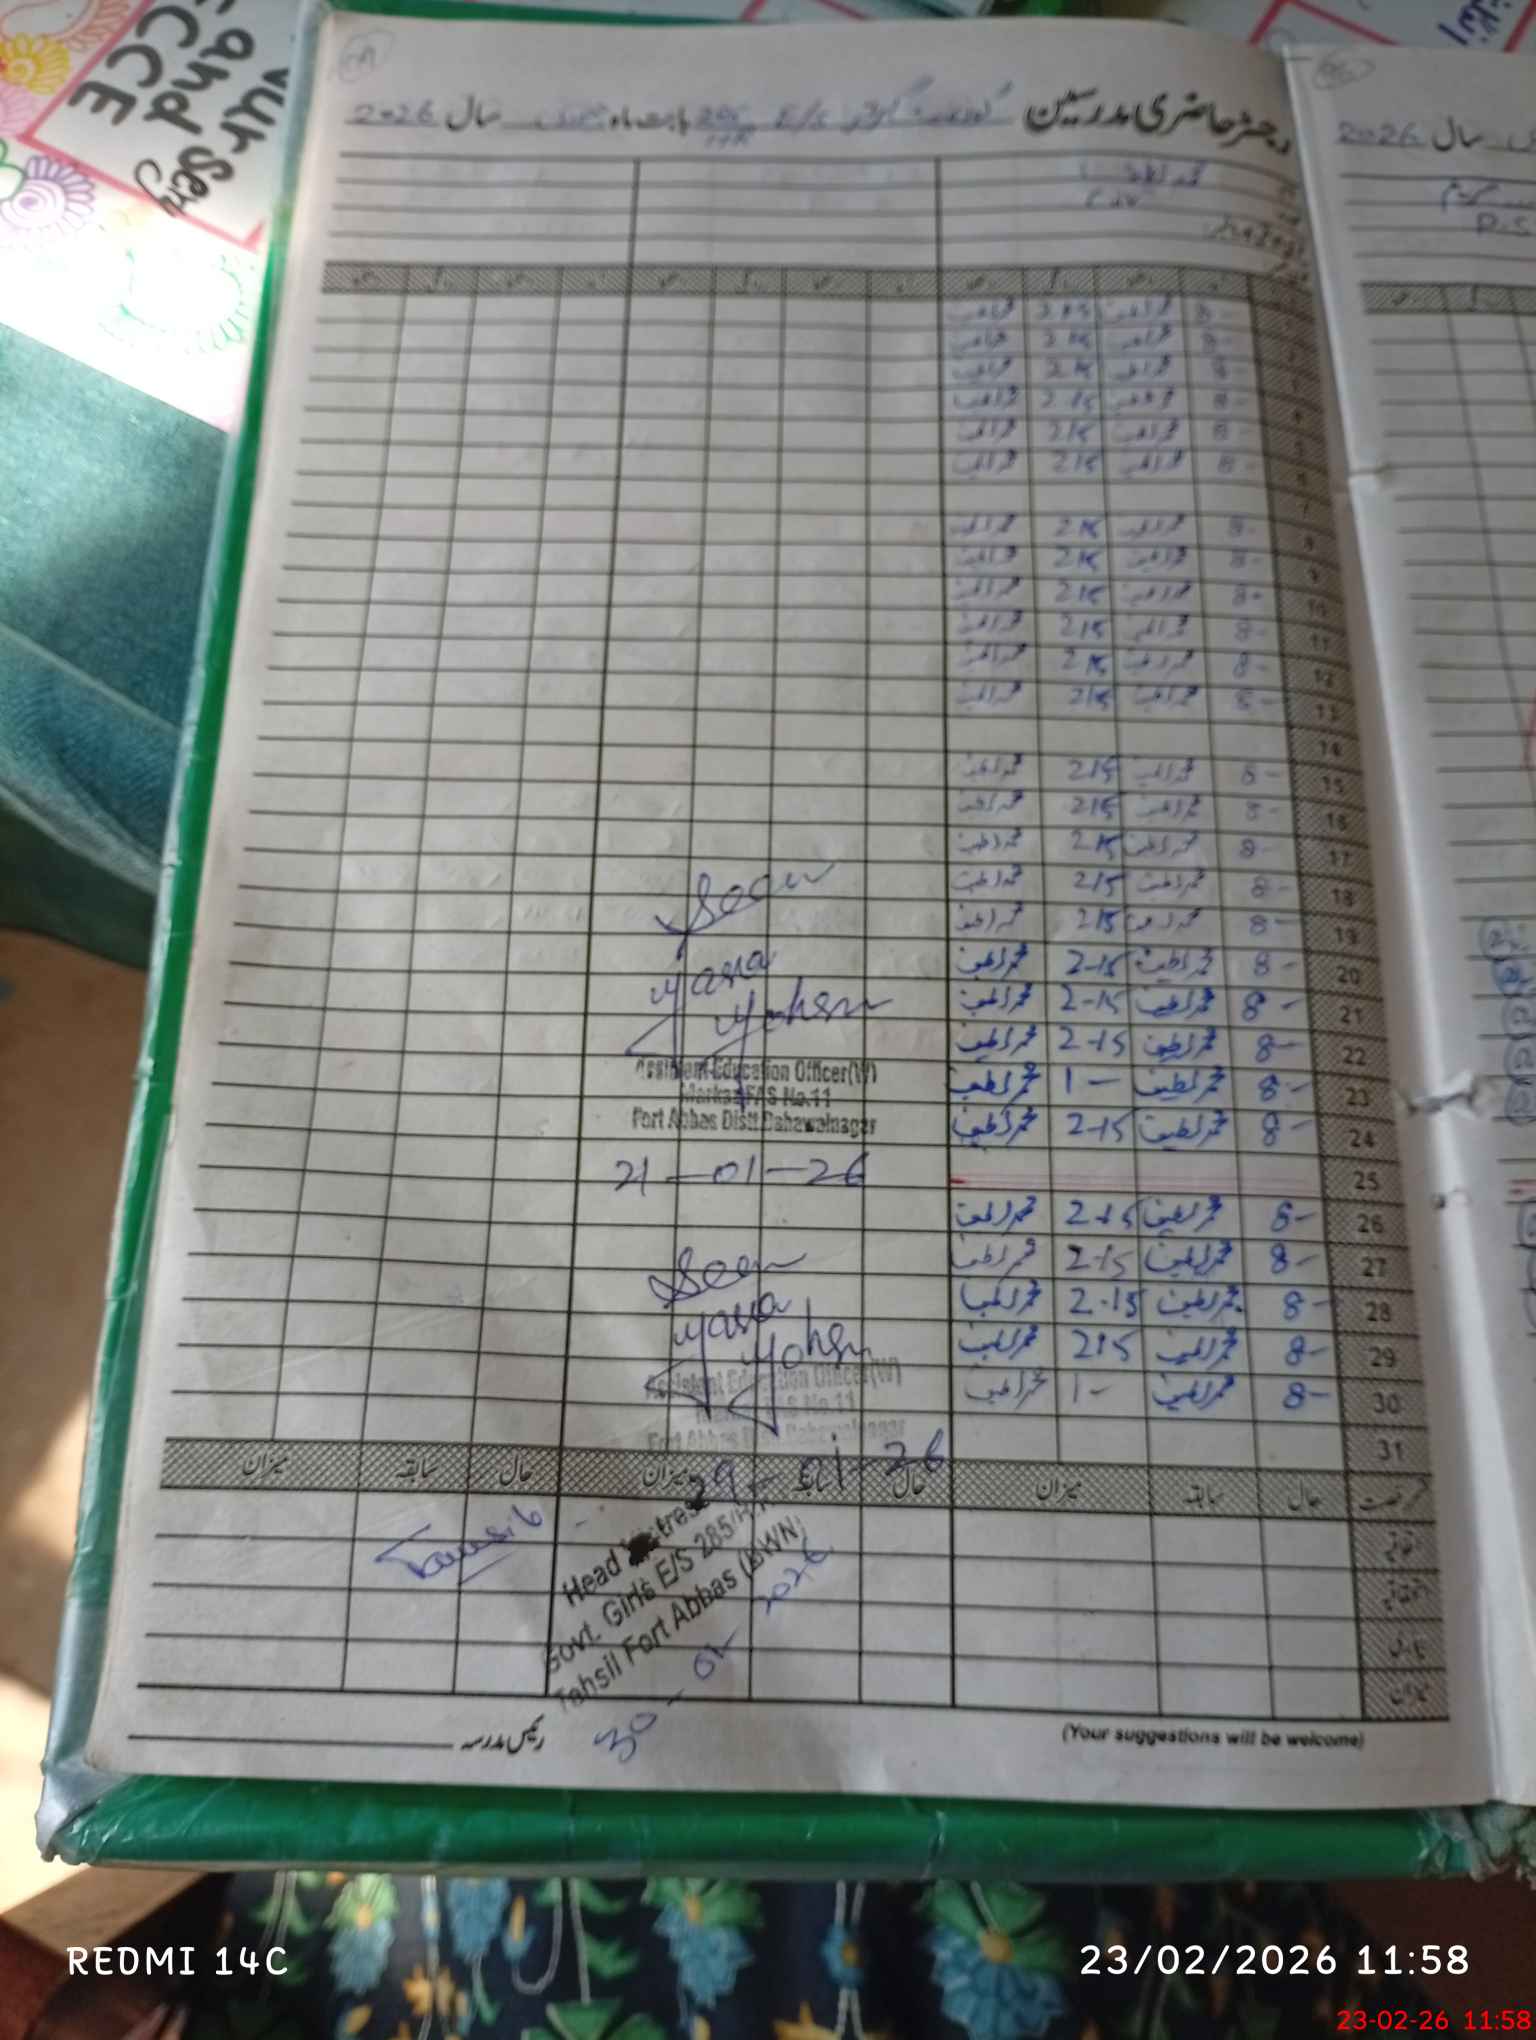 Nursery
and
ECCE
رجسٹر حاضری مدرسین گورنمنٹ گرلز E/S 285 بابت ماہ جنوری سال 2026
سال 2026
محمد لطیف
8- محمد لطیف 215 محمد لطیف
8- محمد لطیف 215 محمد لطیف
8- محمد لطیف 215 محمد لطیف
8- محمد لطیف 2-15 محمد لطیف
8- محمد لطیف 215 محمد لطیف
8- محمد لطیف 215 محمد لطیف
7
8 8- محمد لطیف 215 محمد لطیف
9 8- محمد لطیف 215 محمد لطیف
10 8- محمد لطیف 215 محمد لطیف
11 8- محمد لطیف 215 محمد لطیف
12 8- محمد لطیف 215 محمد لطیف
13 8- محمد لطیف 215 محمد لطیف
14
15 8- محمد لطیف 215 محمد لطیف
16 8- محمد لطیف 215 محمد لطیف
17 8- محمد لطیف 215 محمد لطیف
18 8- محمد لطیف 215 محمد لطیف
19 8- محمد لطیف 215 محمد لطیف
20 8- محمد لطیف 2-15 محمد لطیف
21 8- محمد لطیف 2-15 محمد لطیف
22 8- محمد لطیف 2-15 محمد لطیف
23 8- محمد لطیف 1- محمد لطیف
24 8- محمد لطیف 2-15 محمد لطیف
25
26 8- محمد لطیف 2-15 محمد لطیف
27 8- محمد لطیف 2-15 محمد لطیف
28 8- محمد لطیف 2-15 محمد لطیف
29 8- محمد لطیف 215 محمد لطیف
30 8- محمد لطیف 1- محمد لطیف
31
Seen
Yasra
Mohsin
Assistent Education Officer(W)
Markaz FAS No.11
Fort Abbas Distt Bahawalnagar
21-01-26
Seen
Yasra
Mohsin
Assistent Education Officer(W)
Markaz FAS No.11
Fort Abbas Distt Bahawalnagar
29-01-26
رخصت حال سابقہ میزان حال سابقہ میزان حال سابقہ میزان
اتفاقیہ
استحقاقیہ
بیماری
میزان
Head Mistress
Govt. Girls E/S 285/H.R
Tahsil Fort Abbas (BWN)
30-01-2026
رئیس مدرسہ
(Your suggestions will be welcome)
REDMI 14C
23/02/2026 11:58
23-02-26 11:58